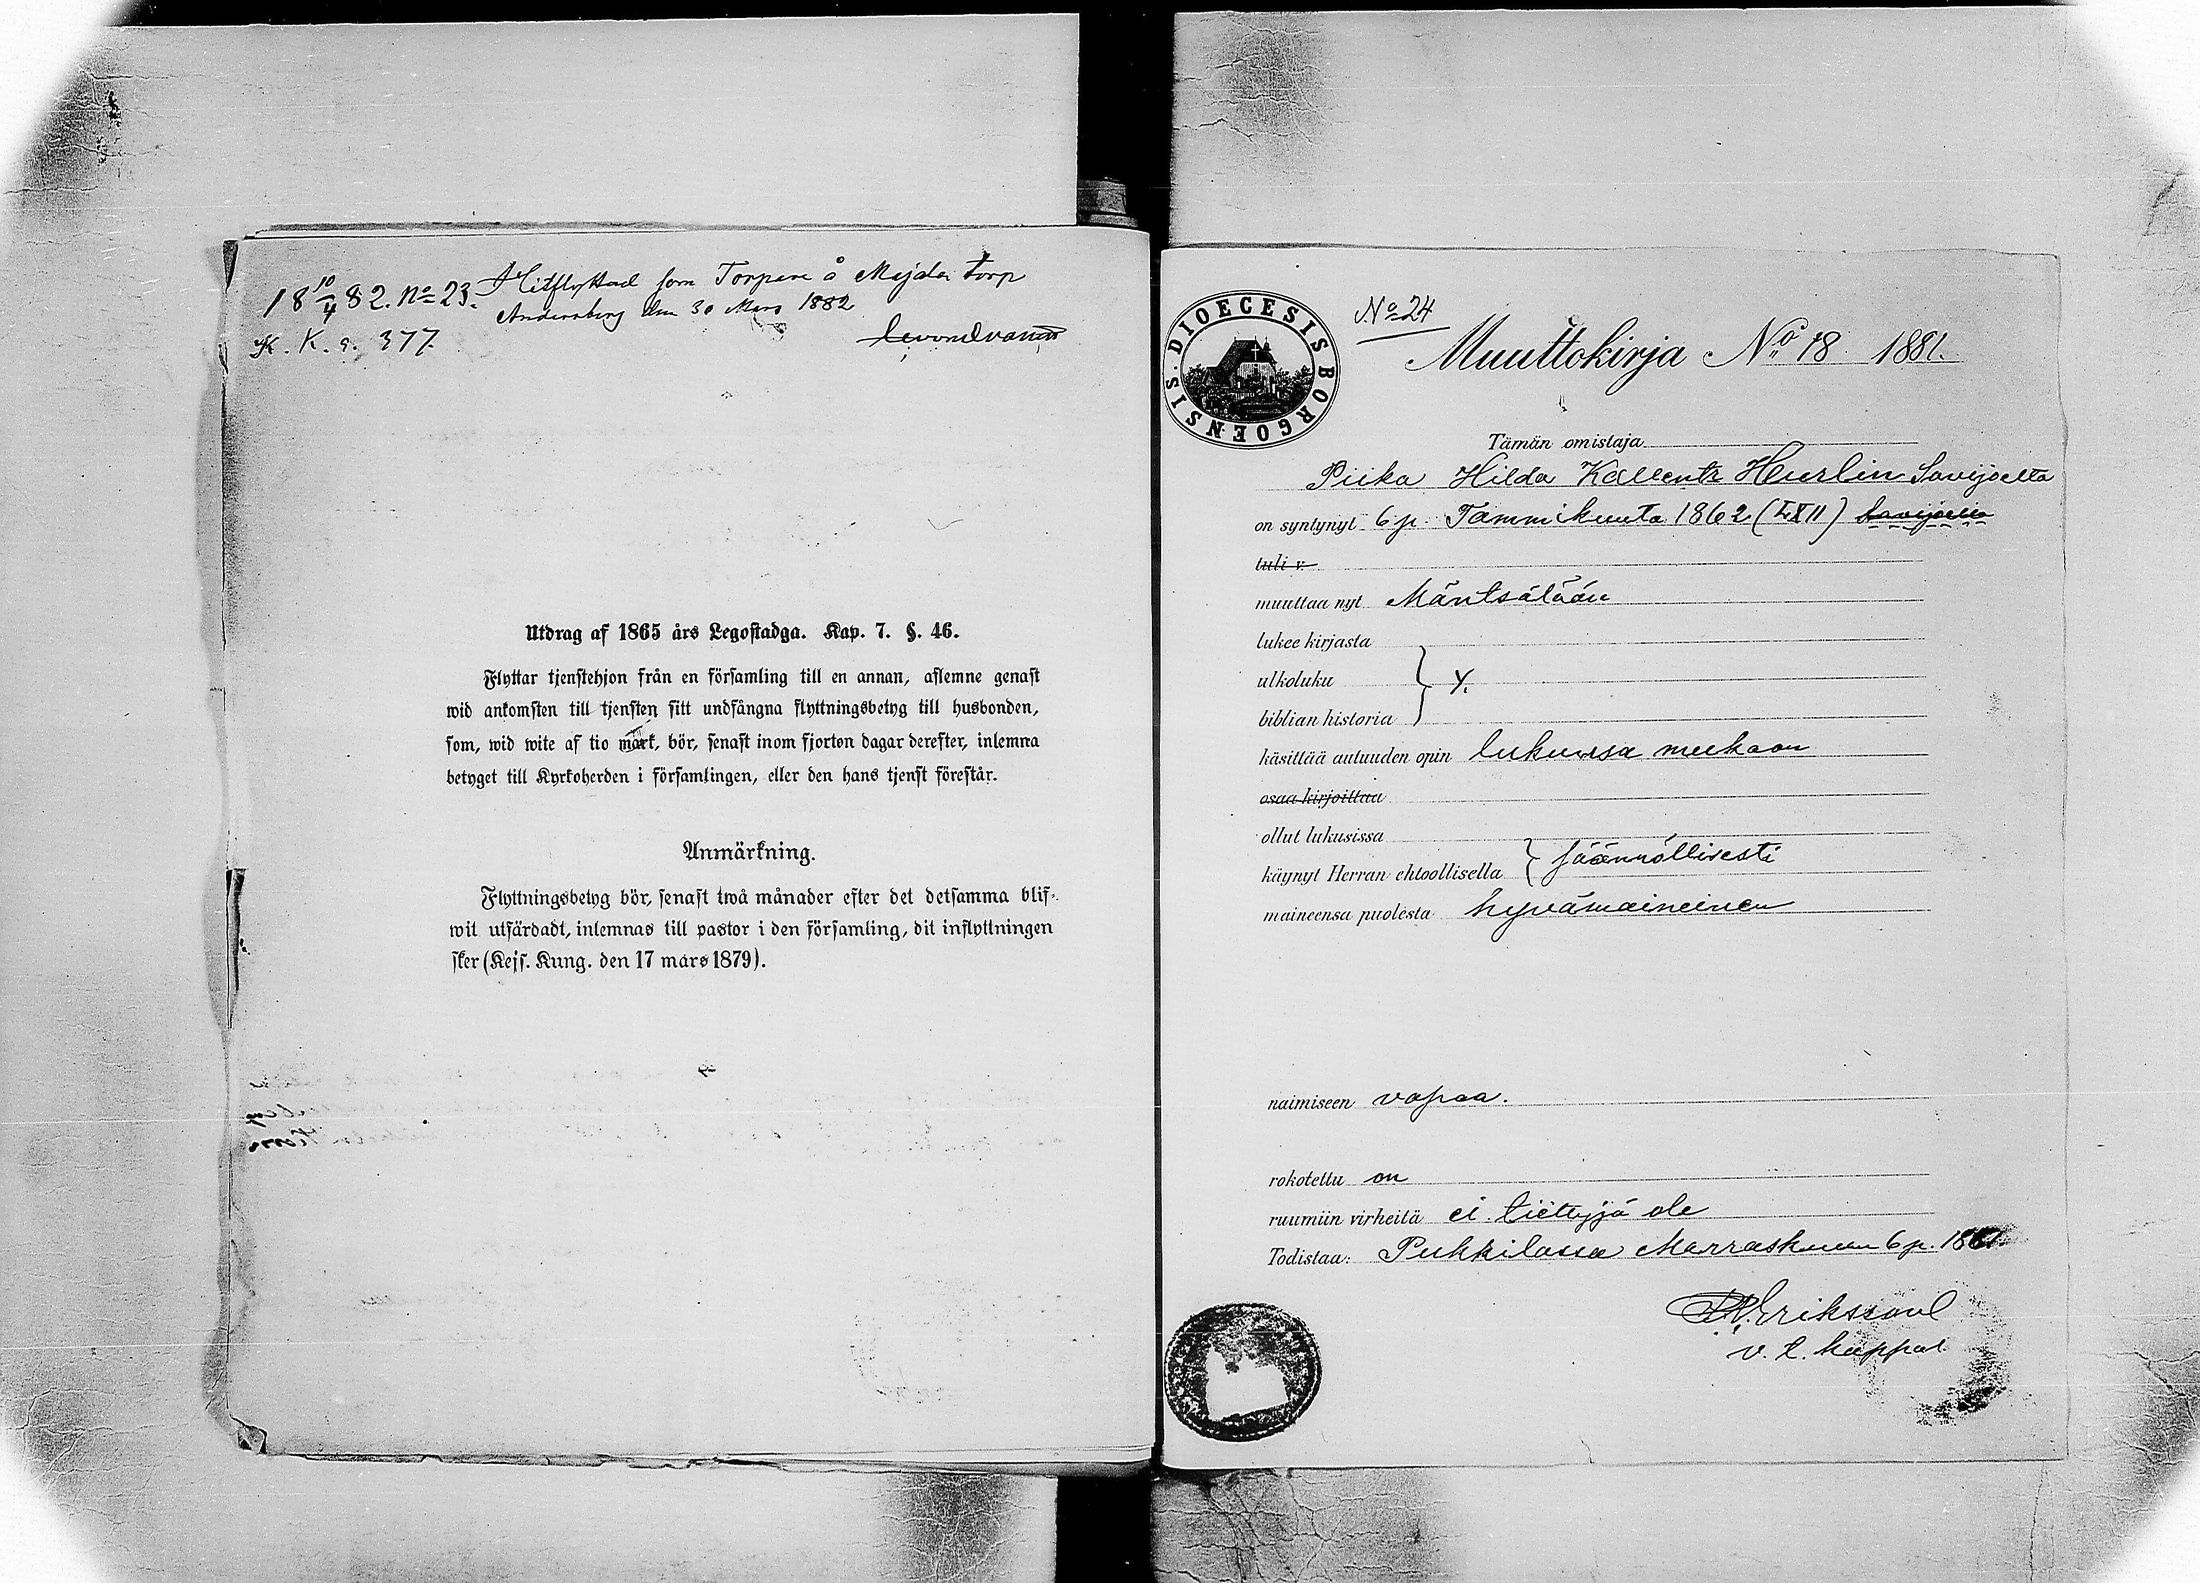 18 10/4 82. No 23. Hitflyttad som Torpare å Mejda torp
Andersberg den 30 Mars 1882
K. K. s. 377.
Utdrag af 1865 års Legostadga. Kap. 7. §. 46.
Flyttar tjenstehjon från en församling till en annan, aflemne genast
wid ankomsten till tjensten sitt undfångna flyttningsbetyg till husbonden,
som, wid wite af tio mark, bör, senast inom fjorton dagar derefter, inlemna
betyget till Kyrkoherden i församlingen, eller den hans tjenst förestår.
Anmärkning.
Flyttningsbetyg bör, senast twå månader efter det detsamma blif-
wit utfärdadt, inlemnas till pastor i den församling, dit inflyttningen
sker (Kejs. Kung. den 17 mars 1879).
DIOECESIS BORGOENSIS.
No 24
Muuttokirja No 18 1881.
Tämän omistaja
Piika Hilda Heurlin Savijoelta
on syntynyt 6 p. Tammikuuta 1862 (LXII) Savijoella
tuli v.
muuttaa nyt Mäntsälään
lukee kirjasta
ulkoluku } y.
biblian historia
käsittää autuuden opin lukunsa mukaan
osaa kirjoittaa
ollut lukusissa
käynyt Herran ehtoollisella } säännöllisesti
maineensa puolesta hyvämaineinen
naimiseen vapaa.
rokotettu on
ruumiin virheitä ei tiettyjä ole
Todistaa: Pukkilassa Marraskuun 6 p. 1881.
Eriksson
v. t. kappal